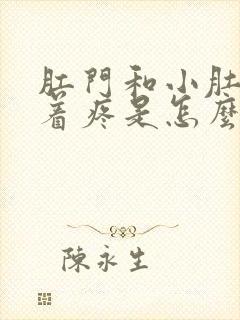 肛門和小肚
着疼是怎麼
陳永生